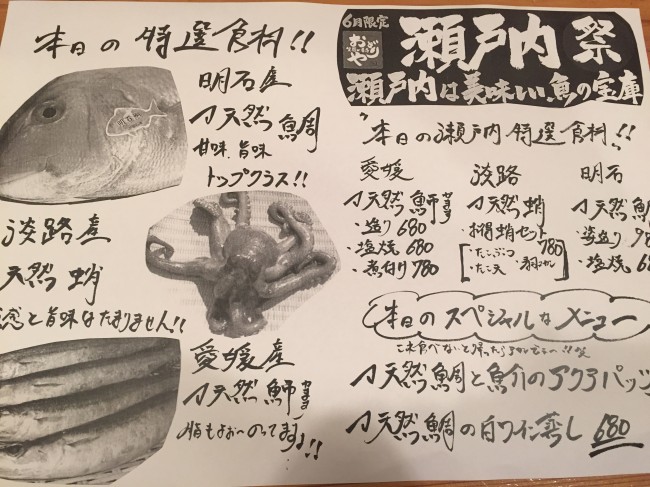 本日の特選食材!!
明石産
天然鯛
甘味、旨味
トップクラス!!
淡路産
天然蛸
感と旨味はたまりません!!
愛媛産
天然鰤
脂もよぉ〜のってます!!
6月限定
瀬戸内祭
瀬戸内は美味しい魚の宝庫
本日の瀬戸内特選食材!!
愛媛
天然鰤
・造り 680
・塩焼 680
・煮付け 780
淡路
天然蛸
・お得蛸セット
780
・たこぶつ
・たこ天
明石
天然鯛
・姿造り 98
・塩焼 6
本日のスペシャルなメニュー
天然鯛と魚介のアクアパッツ
天然鯛の白ワイン蒸し 680